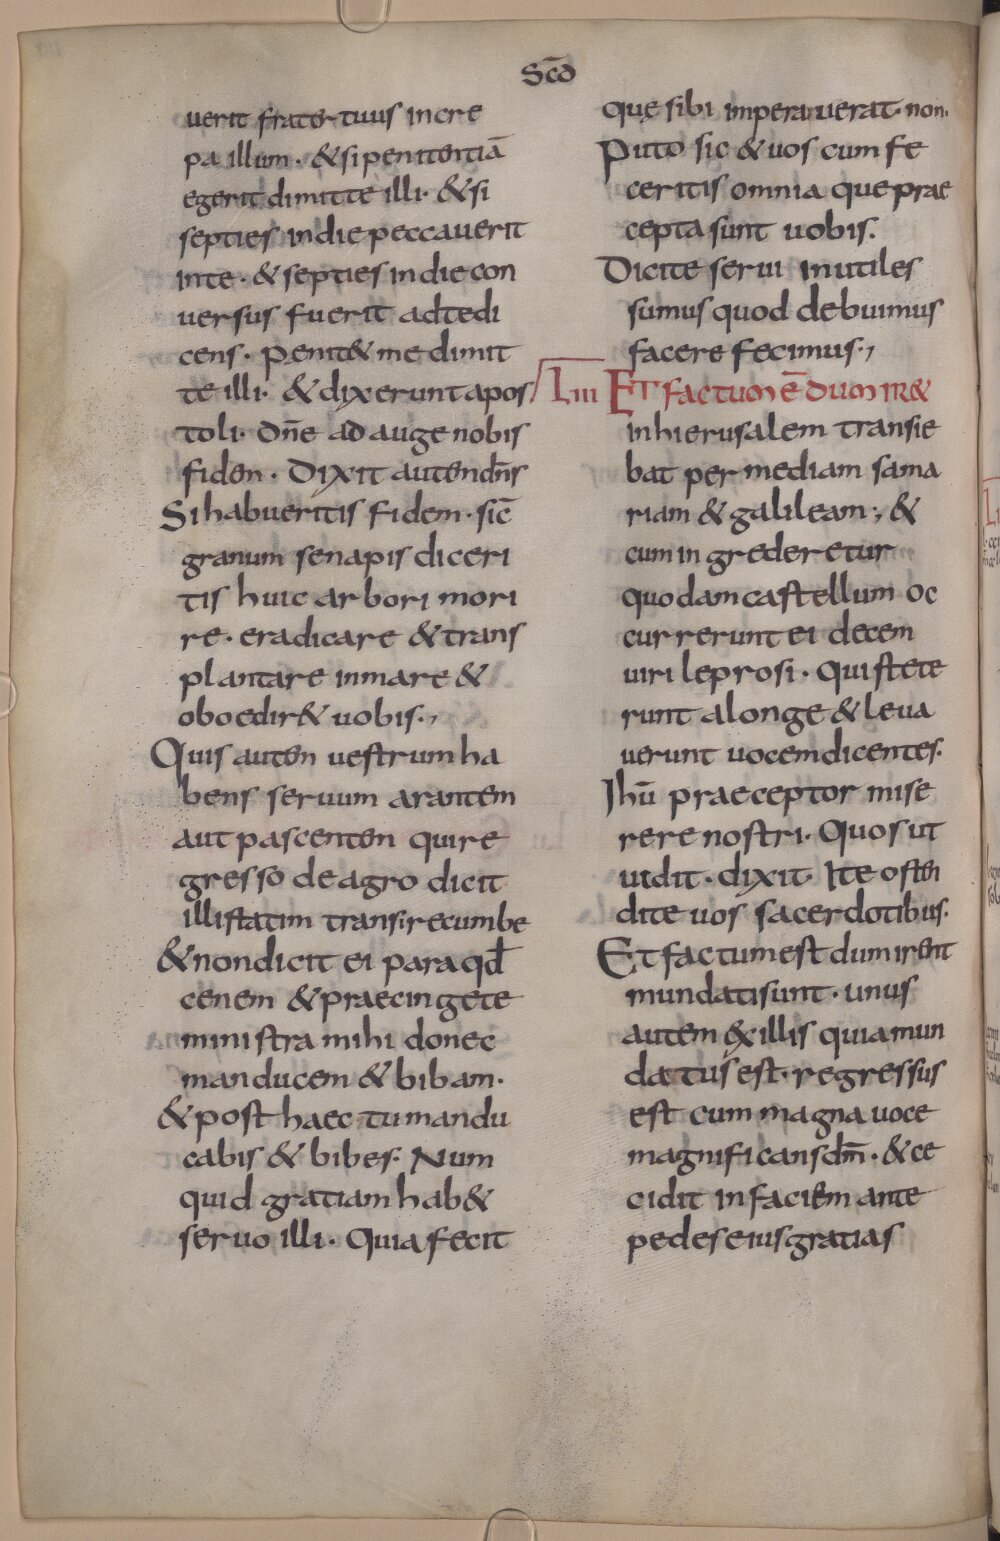 Scđ
uerit frater tuus incre
pa illum · & si penitentiā
egerit dimitte illi · & si
septies indie peccauerit
inte · & septies indie con
uersus fuerit adtedi
cens · penit& me dimit
te illi · & dixerunt apos
toli · dn̄e adauge nobis
fidem · Dixit autem dn̄s
Si habueritis fidem · sic̄
granum senapis diceri
tis huic arbori mori
re · eradicare & trans
plantare inmare &
oboedir& uobis ·,
Quis autem uestrum ha
bens seruum arantem
aut pascentem quire
gresso de agro dicit
illi statim transi recumbe
& non dicit ei para qđ
cenem & praecingete
ministra mihi donec
manducem & bibam ·
& post haec tu mandu
cabis & bibes · Num
quid gratiam hab&
seruo illi · Quia fecit
que sibi imperauerat · non ·
Puto sic & uos cum fe
ceritis omnia que prae
cepta sunt uobis ·
Dicite serui inutiles
sumus quod debuimus
facere fecimus ·,
Liii Et factum ē dum ir&
in hierusalem transie
bat per mediam sama
riam & galileam ; &
cum in grederetur
quodam castellum oc
currerunt ei decem
uiri leprosi · Qui stete
runt alonge & leua
uerunt uocem dicentes ·
Ihū praeceptor mise
rere nostri · Quos ut
uidit · dixit · Ite osten
dite uos sacerdotibus ·
Et factum est dum irent
mundati sunt · unus
autem ex illis quia mun
datus est · regressus
est cum magna uoce
magnificans dm̄ · & ce
cidit in faciem ante
pedes eius gratias